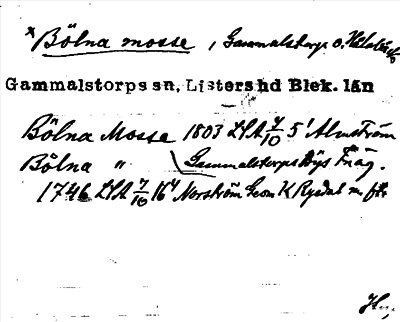 * Bölna mosse, Gammalstorp o.
Gammalstorps sn, Listers hd Blek. län
Bölna Mosse 1803 LSA 7/10 5' Almström
Bölna " Gammalstorps Bys Inäg.
1746 LSA 7/10 16 4 Norström Geom K Rysdal m. fl.